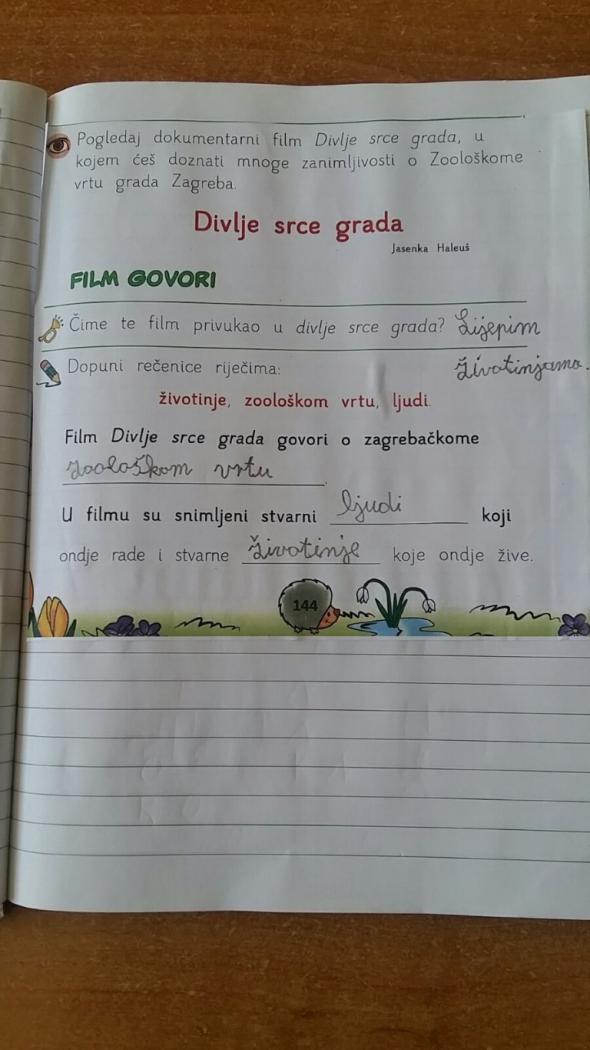 Pogledaj dokumentarni film Divlje srce grada, u
kojem ćeš doznati mnoge zanimljivosti o Zoološkome
vrtu grada Zagreba.
Divlje srce grada
Jasenka Haleuš
FILM GOVORI
Čime te film privukao u divlje srce grada? Lijepim
životinjama.
Dopuni rečenice riječima:
životinje, zoološkom vrtu, ljudi.
Film Divlje srce grada govori o zagrebačkome
zoološkom vrtu.
U filmu su snimljeni stvarni ljudi koji
ondje rade i stvarne životinje koje ondje žive.
144